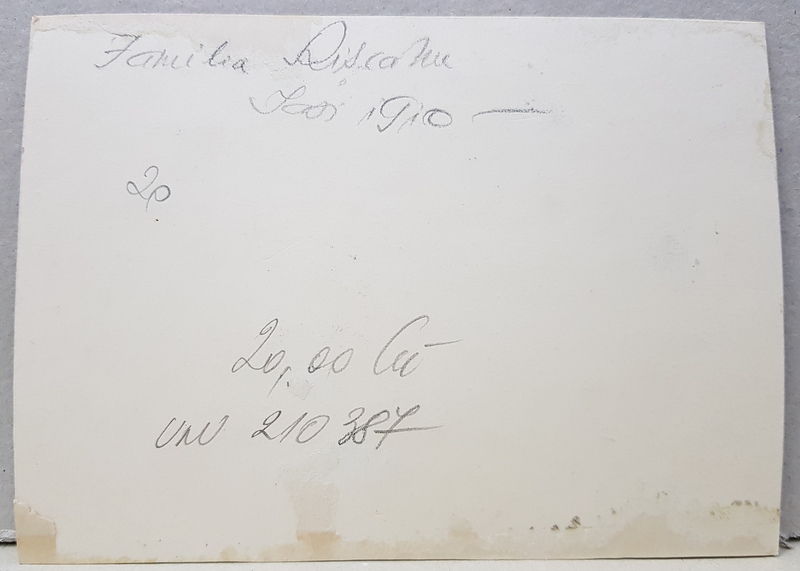 Familia Rîșcanu
Iași 1910 —
20
20,00 lei
UNU 210387